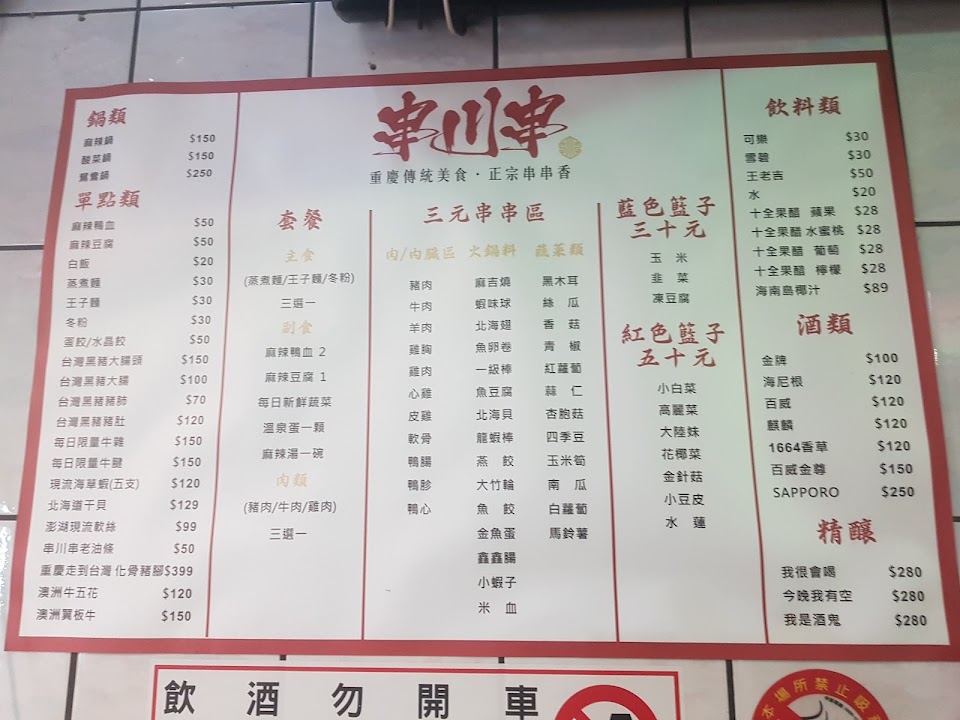 串川串
重慶傳統美食・正宗串串香
鍋類
麻辣鍋 $150
酸菜鍋 $150
鴛鴦鍋 $250
單點類
麻辣鴨血 $50
麻辣豆腐 $50
白飯 $20
蒸煮麵 $30
王子麵 $30
冬粉 $30
蛋餃/水晶餃 $50
台灣黑豬大腸頭 $150
台灣黑豬大腸 $100
台灣黑豬豬肺 $70
台灣黑豬豬肚 $120
每日限量牛雜 $150
每日限量牛腱 $150
現流海草蝦(五支) $120
北海道干貝 $129
澎湖現流軟絲 $99
串川串老油條 $50
重慶走到台灣 化骨豬腳$399
澳洲牛五花 $120
澳洲翼板牛 $150
套餐
主食
(蒸煮麵/王子麵/冬粉)
三選一
副食
麻辣鴨血 2
麻辣豆腐 1
每日新鮮蔬菜
溫泉蛋一顆
麻辣湯一碗
肉類
(豬肉/牛肉/雞肉)
三選一
三元串串區
肉/內臟區
豬肉
牛肉
羊肉
雞胸
雞肉
心雞
皮雞
軟骨
鴨腸
鴨胗
鴨心
火鍋料
麻吉燒
蝦味球
北海翅
魚卵卷
一級棒
魚豆腐
北海貝
龍蝦棒
燕餃
大竹輪
魚餃
金魚蛋
鑫鑫腸
小蝦子
米血
蔬菜類
黑木耳
絲瓜
香菇
青椒
紅蘿蔔
蒜仁
杏胞菇
四季豆
玉米筍
南瓜
白蘿蔔
馬鈴薯
藍色籃子
三十元
玉米
韭菜
凍豆腐
紅色籃子
五十元
小白菜
高麗菜
大陸妹
花椰菜
金針菇
小豆皮
水蓮
飲料類
可樂 $30
雪碧 $30
王老吉 $50
水 $20
十全果醋 蘋果 $28
十全果醋 水蜜桃 $28
十全果醋 葡萄 $28
十全果醋 檸檬 $28
海南島椰汁 $89
酒類
金牌 $100
海尼根 $120
百威 $120
麒麟 $120
1664香草 $120
百威金尊 $150
SAPPORO $250
精釀
我很會喝 $280
今晚我有空 $280
我是酒鬼 $280
飲酒勿開車
本場所禁止